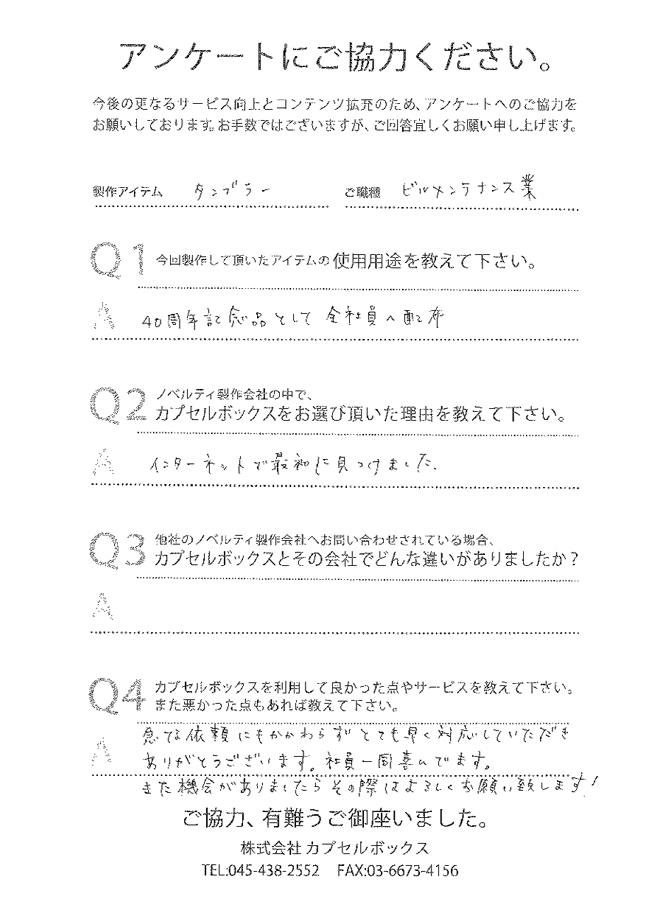 アンケートにご協力ください。
今後の更なるサービス向上とコンテンツ拡充のため、アンケートへのご協力を
お願いしております。お手数ではございますが、ご回答宜しくお願い申し上げます。
製作アイテム タンブラー ご職種 ビルメンテナンス業
Q1 今回製作して頂いたアイテムの使用用途を教えて下さい。
A 40周年記念品として 全社員へ配布
Q2 ノベルティ製作会社の中で、
カプセルボックスをお選び頂いた理由を教えて下さい。
A インターネットで最初に見つけました.
Q3 他社のノベルティ製作会社へお問い合わせされている場合、
カプセルボックスとその会社でどんな違いがありましたか?
A
Q4 カプセルボックスを利用して良かった点やサービスを教えて下さい。
また悪かった点もあれば教えて下さい。
A 急な依頼にもかかわらずとても早く対応していただき
ありがとうございます。社員一同喜んでます。
また機会がありましたらその際はよろしくお願い致します!
ご協力、有難うご御座いました。
株式会社 カプセルボックス
TEL:045-438-2552 FAX:03-6673-4156